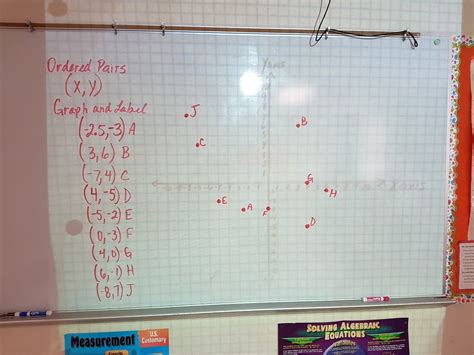 Ordered Pairs
(X,Y)
Graph and Label
(-2.5,-3) A
(3,6) B
(-7,4) C
(4,-5) D
(-5,-2) E
(0,-3) F
(4,0) G
(6,-1) H
(-8,7) J
J
B
C
G
H
E
A
F
D
X axis
Measurement
U.S.
Customary
SOLVING ALGEBRAIC
EQUATIONS